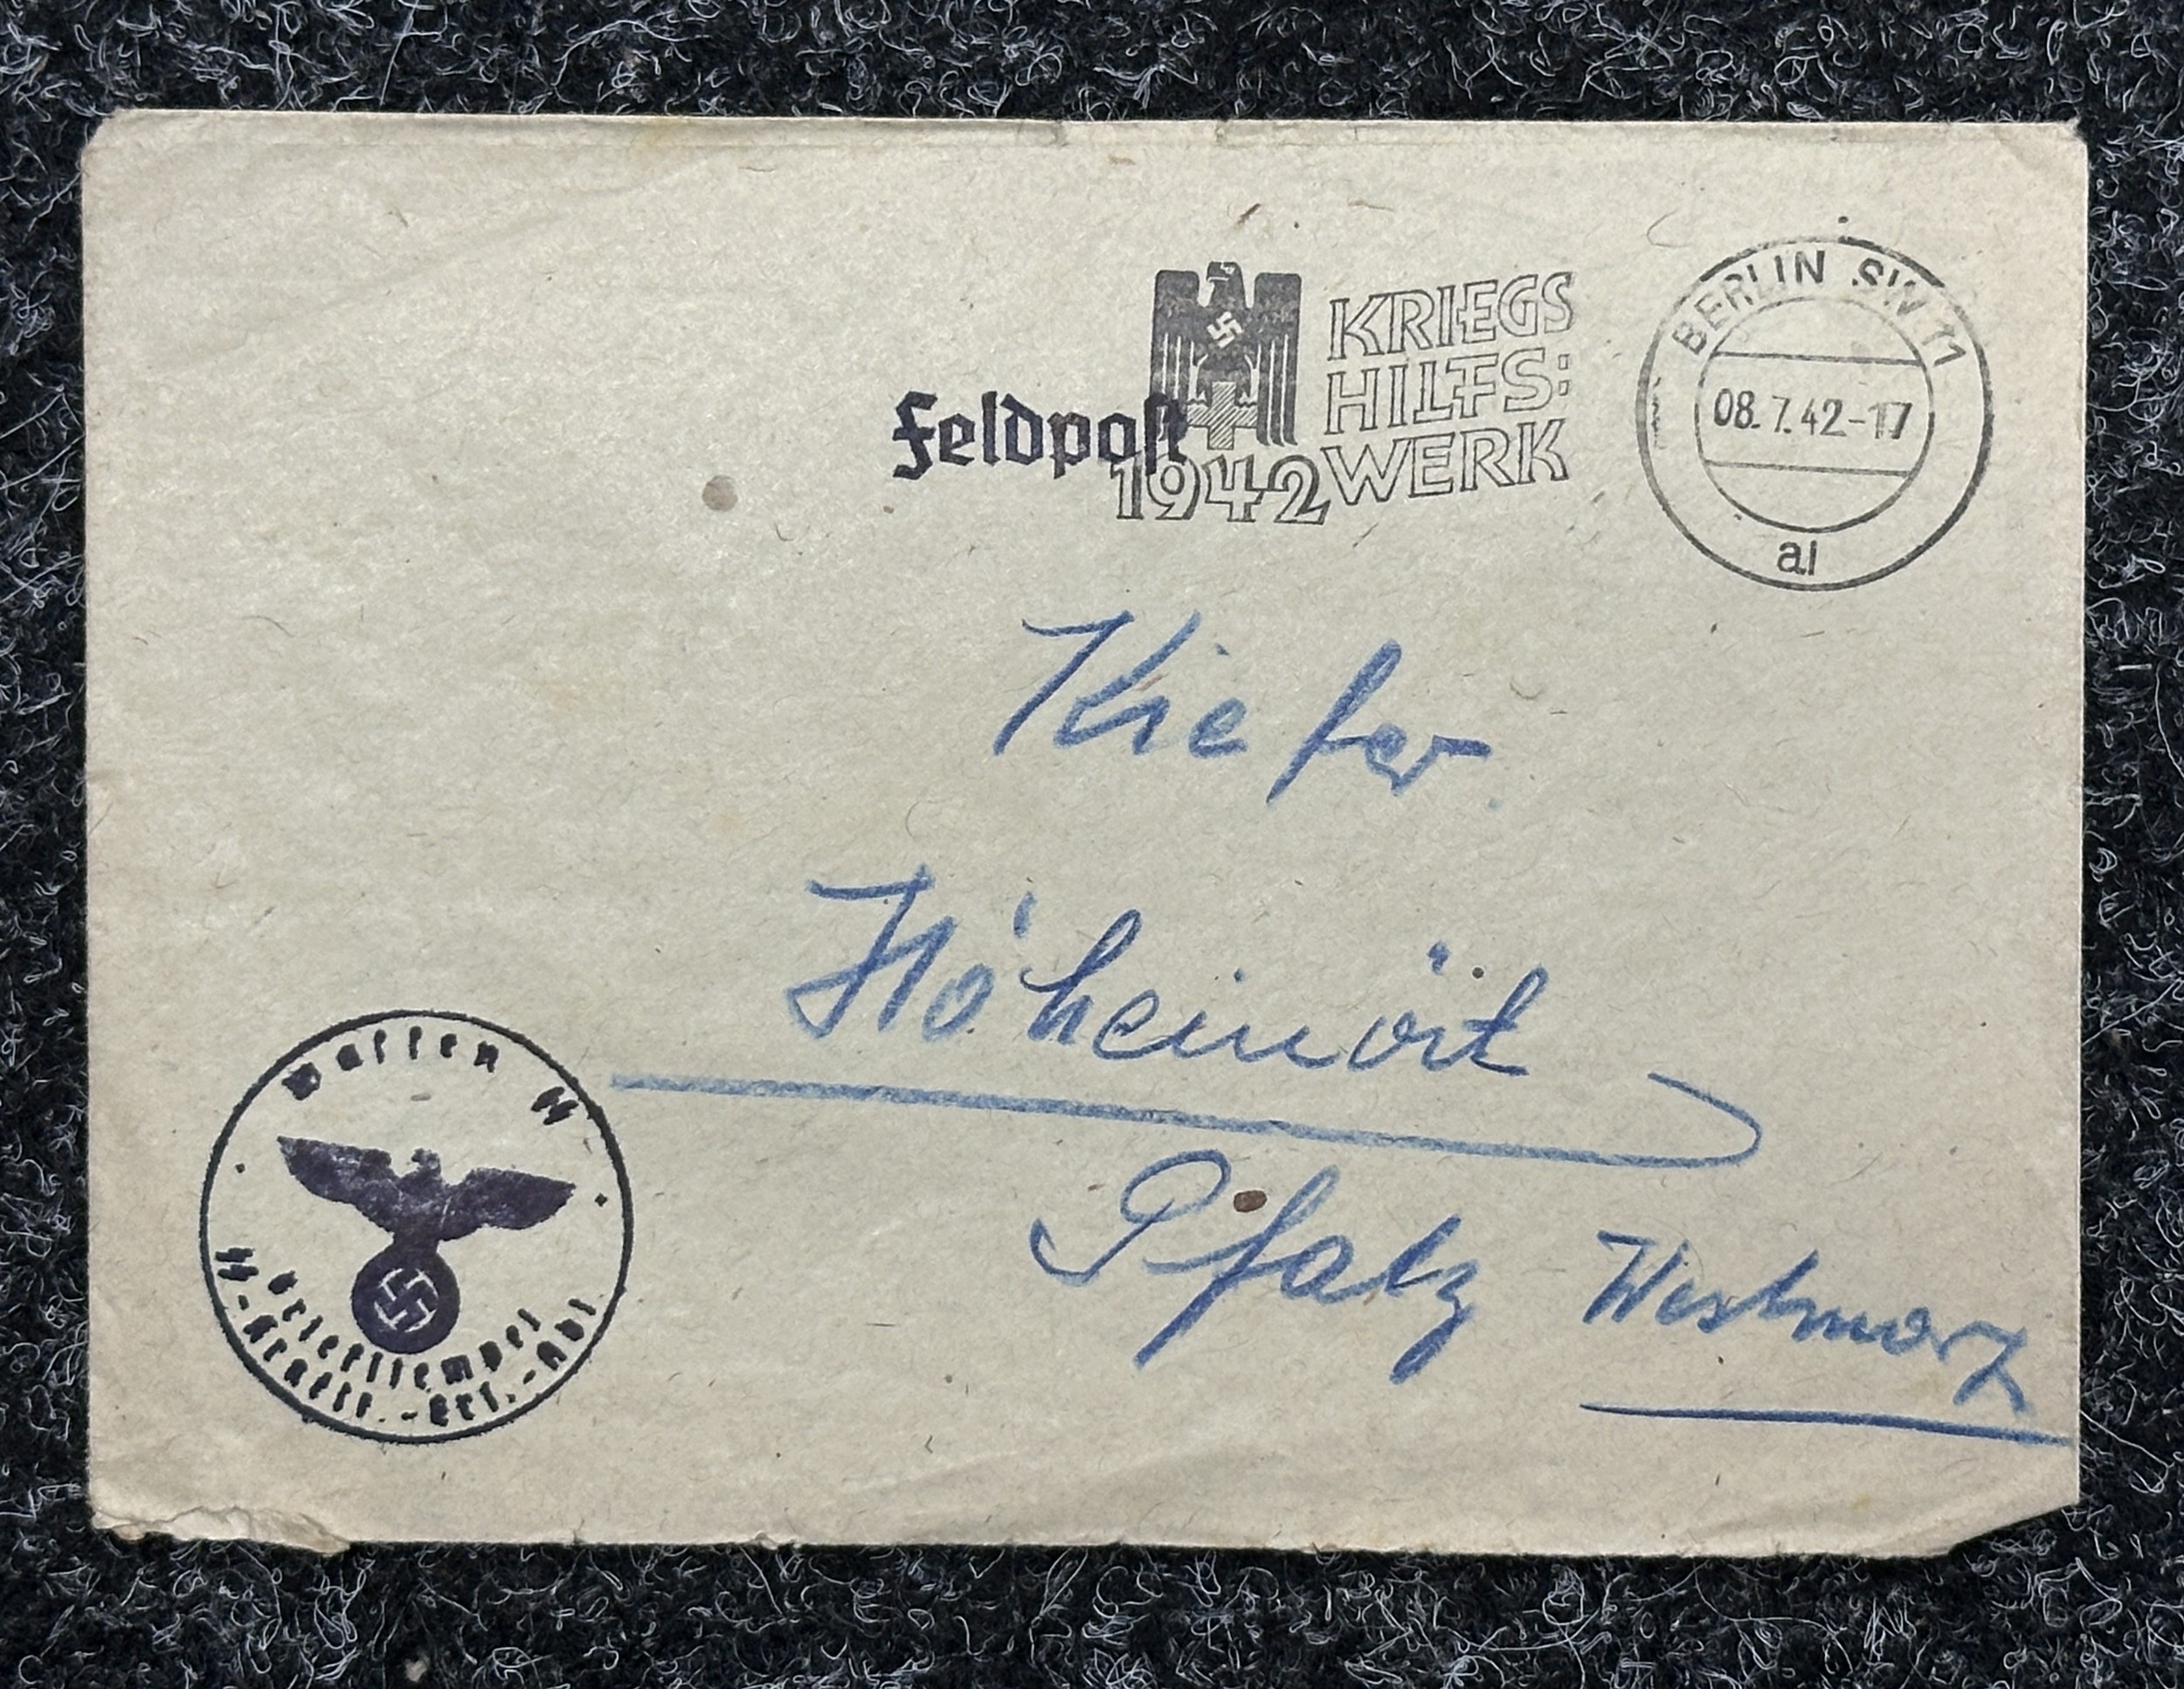 Feldpost
1942
KRIEGS
HILFS:
WERK
BERLIN SW 11
08.7.42-17
ai
Kiefer
Höheinöd
Pfalz Westmark
Waffen ᛋᛋ
Briefstempel
ᛋᛋ-Kraftf.-Ers.-Abt.